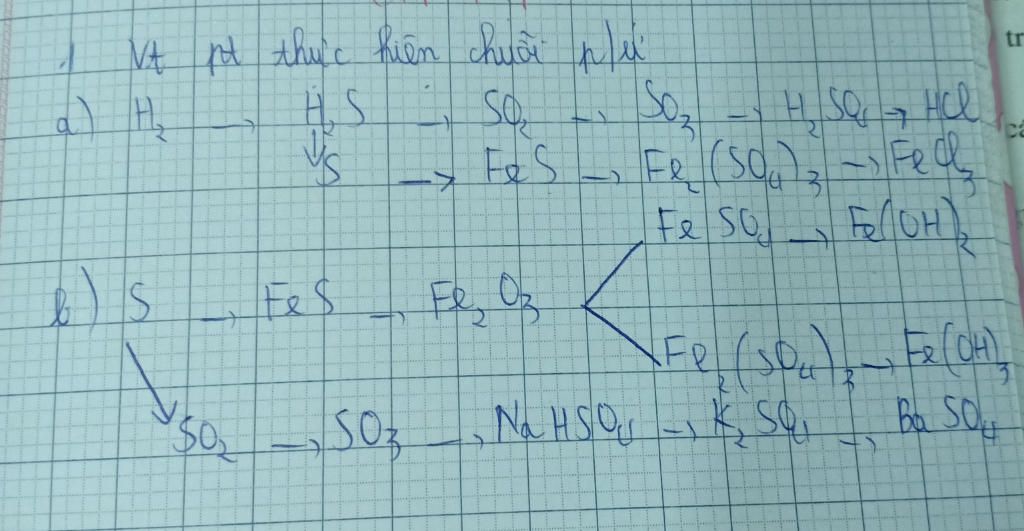 1 Vt pt thực hiện chuỗi p/ư
a) H₂ → H₂S → SO₂ → SO₃ → H₂SO₄ → HCl
↓S → FeS → Fe₂(SO₄)₃ → FeCl₃
FeSO₄ → Fe(OH)₂
b) S → FeS → Fe₂O₃
Fe₂(SO₄)₃ → Fe(OH)₃
SO₂ → SO₃ → NaHSO₄ → K₂SO₄ → BaSO₄
tr